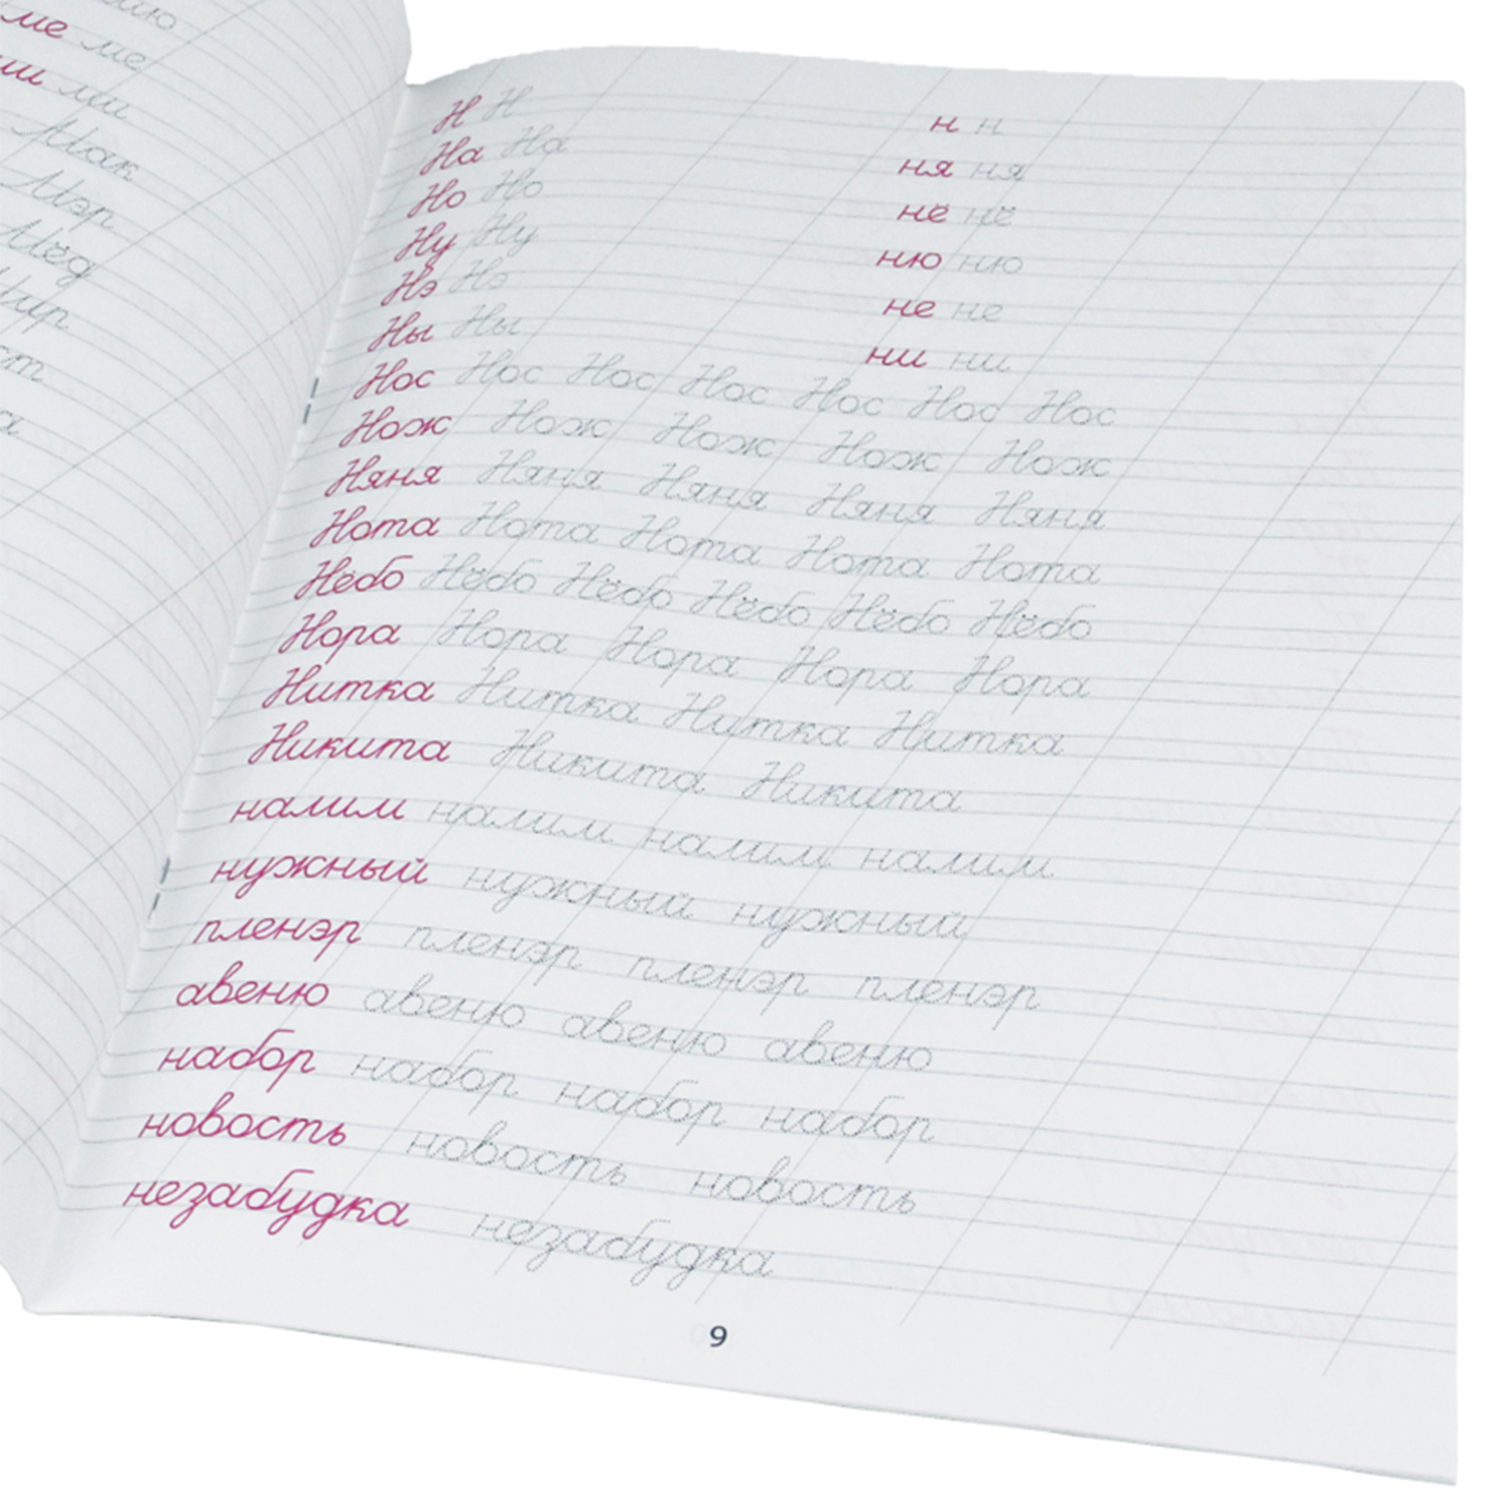 ме ме
ми ми
Мак
Мэр
Мёд
Н Н н н
На На ня ня
Но Но нё нё
Ну Ну ню ню
Нэ Нэ не не
Ны Ны ни ни
Нос Нос Нос Нос Нос Нос Нос
Нож Нож Нож Нож Нож
Няня Няня Няня Няня Няня
Нота Нота Нота Нота Нота
Нёбо Нёбо Нёбо Нёбо Нёбо Нёбо
Нора Нора Нора Нора Нора
Нитка Нитка Нитка Нитка
Никита Никита Никита
налим налим налим налим
нужный нужный нужный
пленэр пленэр пленэр пленэр
авеню авеню авеню авеню
набор набор набор набор
новость новость новость
незабудка незабудка
9